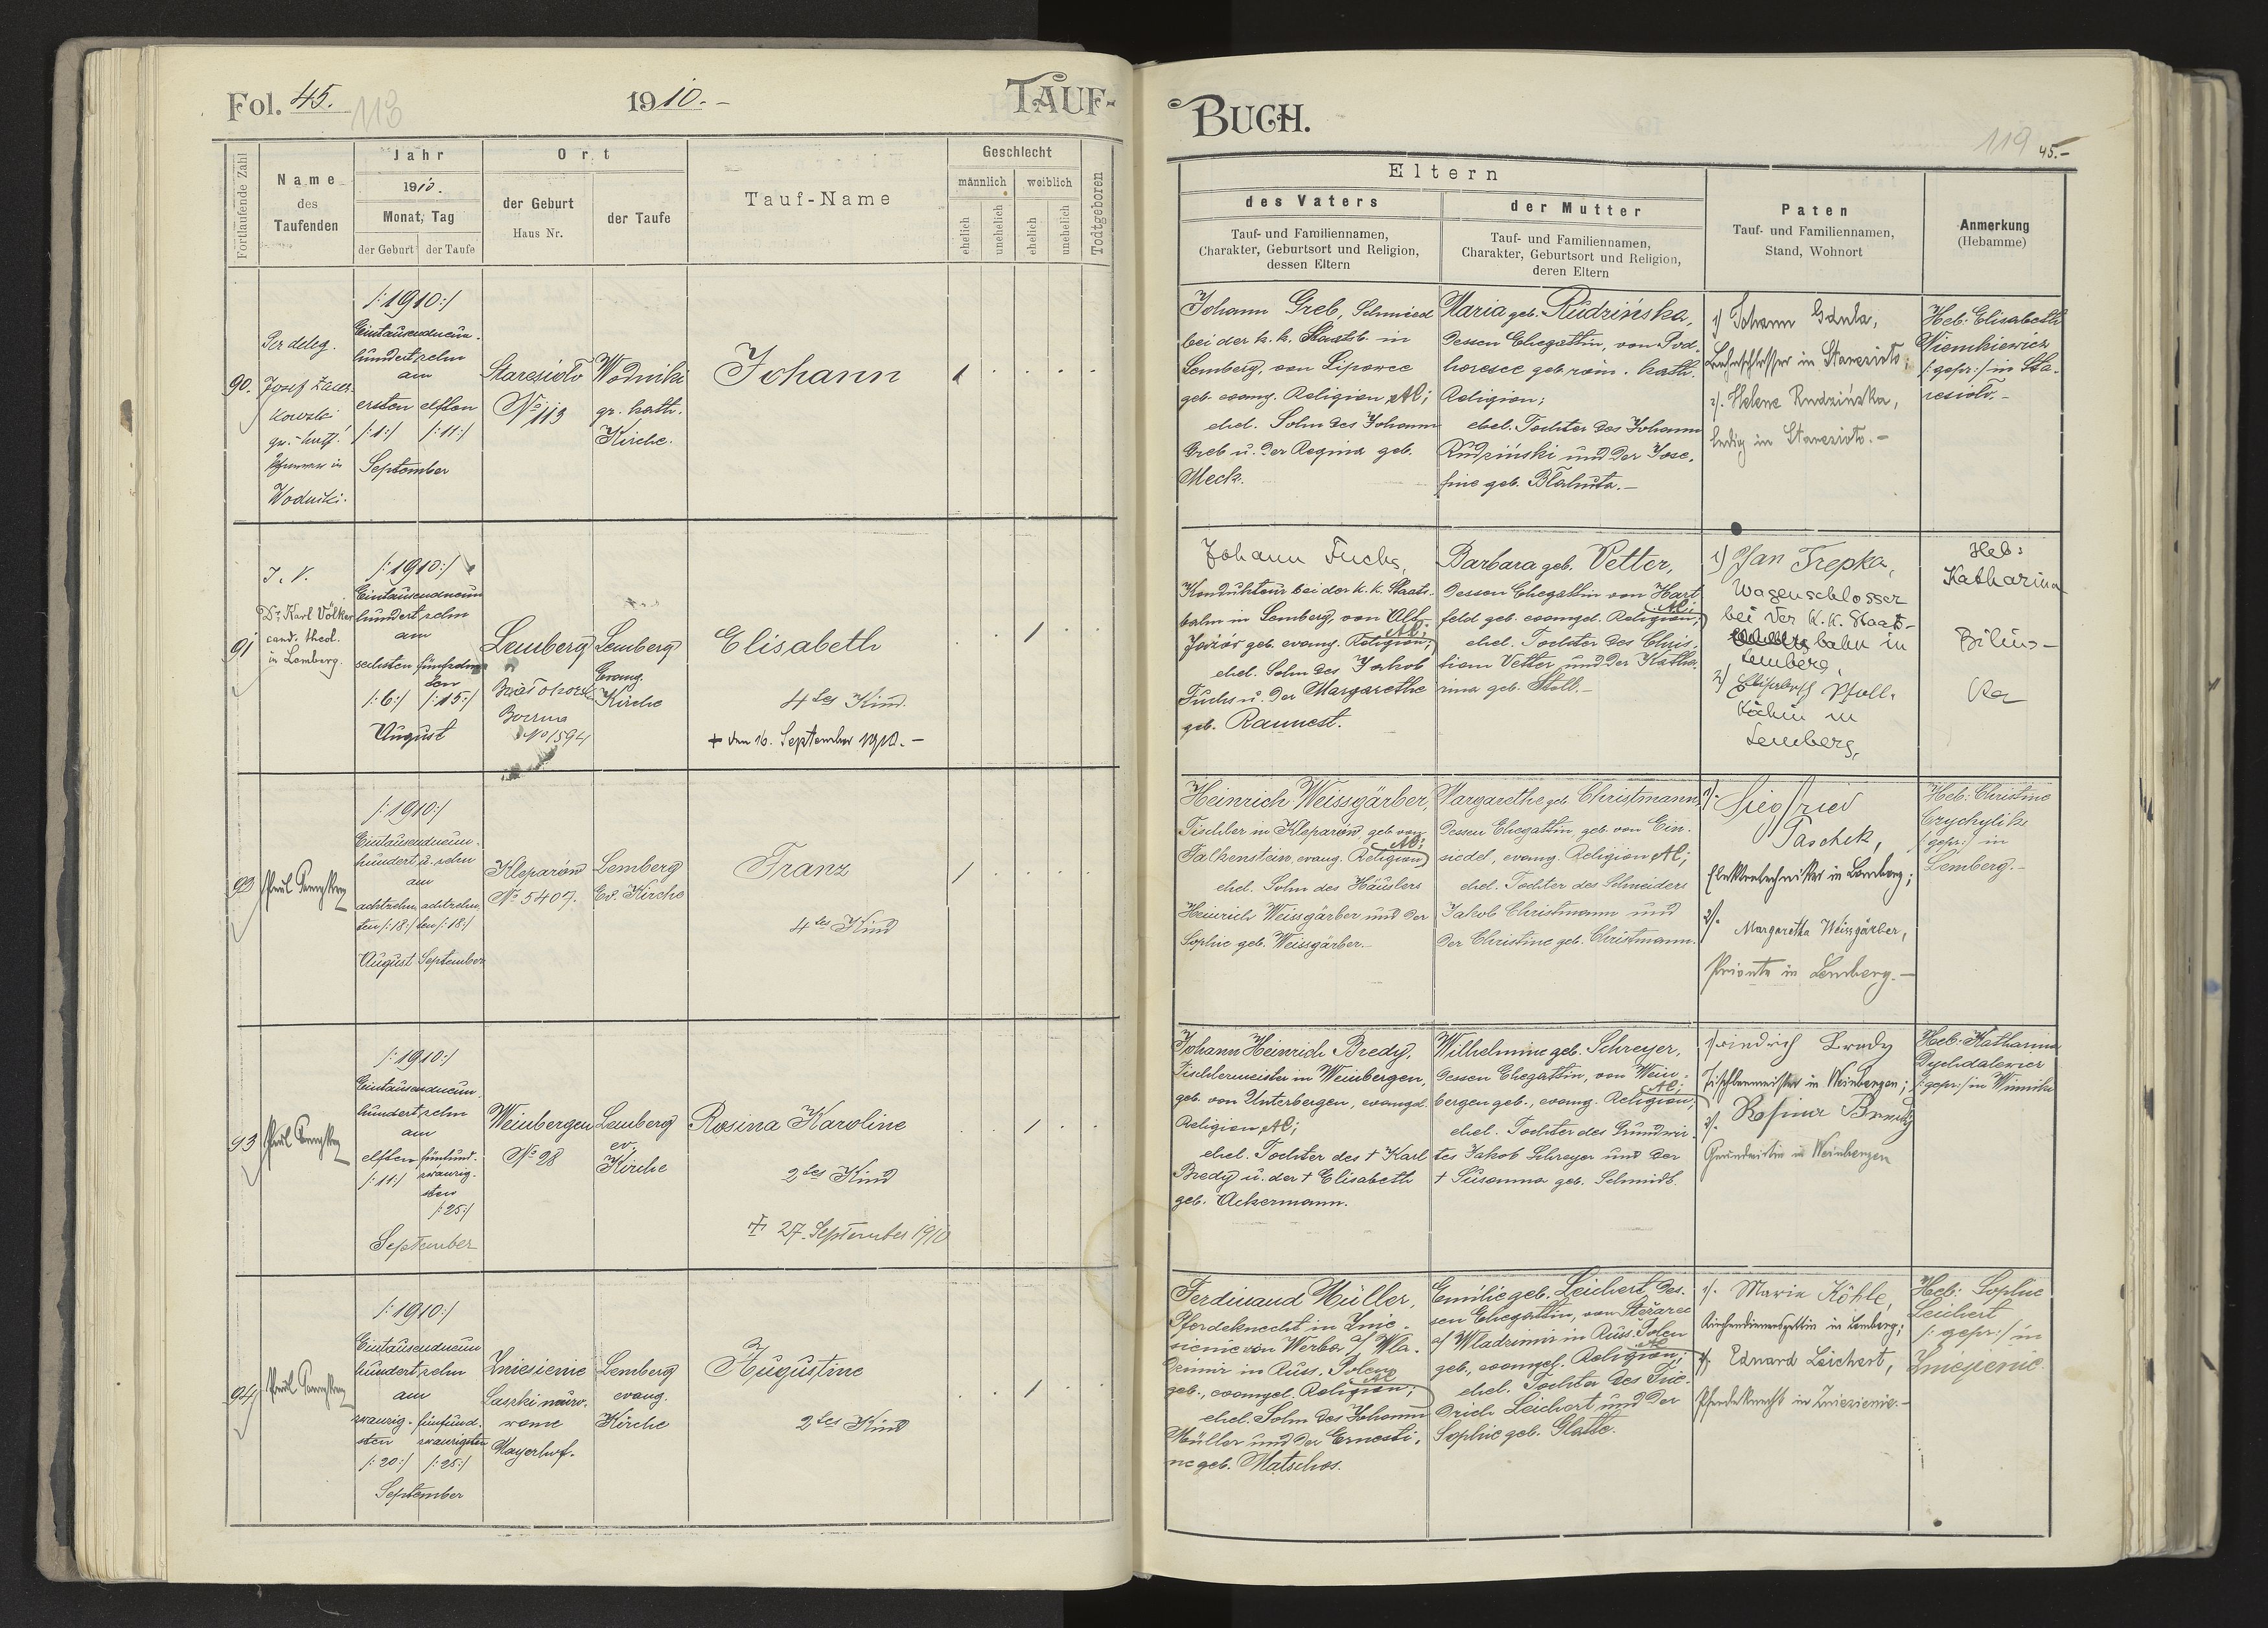 Fol. 45.
113
1910.-
TAUF-
Fortlaufende Zahl
Name
des
Taufenden
Jahr
1910.
Monat, Tag
der Geburt
der Taufe
Ort
der Geburt
Haus Nr.
der Taufe
Tauf-Name
Geschlecht
männlich
weiblich
ehelich
unehelich
ehelich
unehelich
Todtgeboren
90.
Per deleg.
Josef
kowski
gr.-kath.
in
Wodniki.
/:1910:/
Eintausendneun-
hundertzehn
am
ersten elften
/:1:/ /:11:/
September
Staresioło
No 113
Wodniki
gr. kath.
Kirche.
Johann
1
91
I. V.
Dr. Karl Völker
cand. theol.
in Lemberg.
/:1910:/
Eintausendneun
hundertzehn
am
sechsten fünfzehn
ten
/:6:/ /:15:/
August
Lemberg
No 1594
Lemberg
Evang.
Kirche
Elisabeth
4tes Kind.
+ den 16. September 1910.-
1
92
/:1910:/
Eintausendneun-
hundert u. zehn
am
achtzehn achtzehn
ten /:18:/ ten /:18:/
August September
Kleparów
No 5407.
Lemberg
Ev. Kirche
Franz
4tes Kind
1
93
/:1910:/
Eintausendneun-
hundertzehn
am
elften fünfund-
zwanzig-
sten
/:11:/
/:25:/
September
Weinbergen
No 28
Lemberg
ev.
Kirche
Rosina Karoline
2tes Kind
+ 27. September 1910
1
94
/:1910:/
Eintausendneun
hundertzehn
am
zwanzig- fünfund-
sten zwanzigsten
/:20:/ /:25:/
September
Zniesienie
Laszki muro-
wane
Mayerhof.
Lemberg
evang.
Kirche
Augustine
2tes Kind
1
BUCH.
119
45.-
Eltern
des Vaters
Tauf- und Familiennamen,
Charakter, Geburtsort und Religion,
dessen Eltern
der Mutter
Tauf- und Familiennamen,
Charakter, Geburtsort und Religion,
deren Eltern
Paten
Tauf- und Familiennamen,
Stand, Wohnort
Anmerkung
(Hebamme)
Johann Greb, Schmied
bei der k. k. Staatsb. in
Lemberg, von Lipowce
geb. evang. Religion AC;
ehel. Sohn des Johann
Greb u. der Regina geb.
Meck.
Maria geb. Rudzińska,
dessen Ehegattin, von Pod-
horesce geb. röm. kath.
Religion;
ehel. Tochter des Johann
Rudziński und der Jose-
fine geb. Błahuta.-
1) Johann
in Staresioło;
2). Helene Rudzińska,
ledig in Staresioło.-
Heb: Elisabeth
Niemkiewicz
/:gepr:/ in Sta-
resioło.-
Johann Fuchs,
Kondukteur bei der k. k. Staats-
bahn in Lemberg, von Alt-
Jazów geb. evang. Religion AC;
ehel. Sohn des Jakob
Fuchs u. der Margarethe
geb. Raunest.
Barbara geb. Vetter,
dessen Ehegattin von Hart-
feld geb. evangel. Religion AC;
ehel. Tochter des Chris-
tian Vetter und der Katha-
rina geb. Stoll.-
1) Jan Trepka,
Wagenschlosser
bei der K. K. Staats-
bahn in
Lemberg,
2) Elisabeth
Köchin in
Lemberg,
Heb:
Katharina
Bilins-
ka
Heinrich Weissgärber,
Tischler in Kleparów, geb. von
Falkenstein, evang. Religion AC;
ehel. Sohn des Häuslers
Heinrich Weissgärber und der
Sophie geb. Weissgärber.-
Margarethe geb. Christmann,
dessen Ehegattin, geb. von Ein-
siedel, evang. Religion AC;
ehel. Tochter des Schneiders
Jakob Christmann und
der Christine geb. Christmann.
1). Siegfried
Paschek,
Elektrotechniker in Lemberg;
2). Margaretha Weissgärber,
Private in Lemberg.-
Heb: Christine
Krychylik
/:gepr:/ in
Lemberg.-
Johann Heinrich Bredy,
Tischlermeister in Weinbergen,
geb. von Unterbergen, evangel.
Religion, AC;
ehel. Tochter des + Karl
Bredy u. der + Elisabeth
geb. Ackermann.
Wilhelmine geb. Schreyer,
dessen Ehegattin, von Wein-
bergen geb., evang. Religion, AC;
ehel. Tochter des Grundwir-
tes Jakob Schreyer und der
+ Susanna geb. Schmidt.
Friedrich Bredy
Tischlermeister in Weinbergen;
2). Rosina
Grundwirtin in Weinbergen
Heb: Katharina
Dychdalewicz
/:gepr:/ in Winniki
Ferdinand Müller,
Pferdeknecht in Znie-
sienie von Werba a/ Wla-
dimir in Russ. Polen
geb., evangel. Religion AC;
ehel. Sohn des Johann
Müller und der Ernesti-
ne geb. Matschos.
Emilie geb. Leichert, des-
sen Ehegattin, von
a/ Wladzimir in Russ. Polen
geb., evangel. Religion AC;
ehel. Tochter des Frie-
drich Leichert und der
Sophie geb. Glatte.
1). Marie Köhle,
Kirchendienersgattin in Lemberg;
2). Eduard Leichert,
Pferdeknecht in Zniesienie.-
Heb: Sophie
Leichert
/:gepr:/ in
Zniesienie.